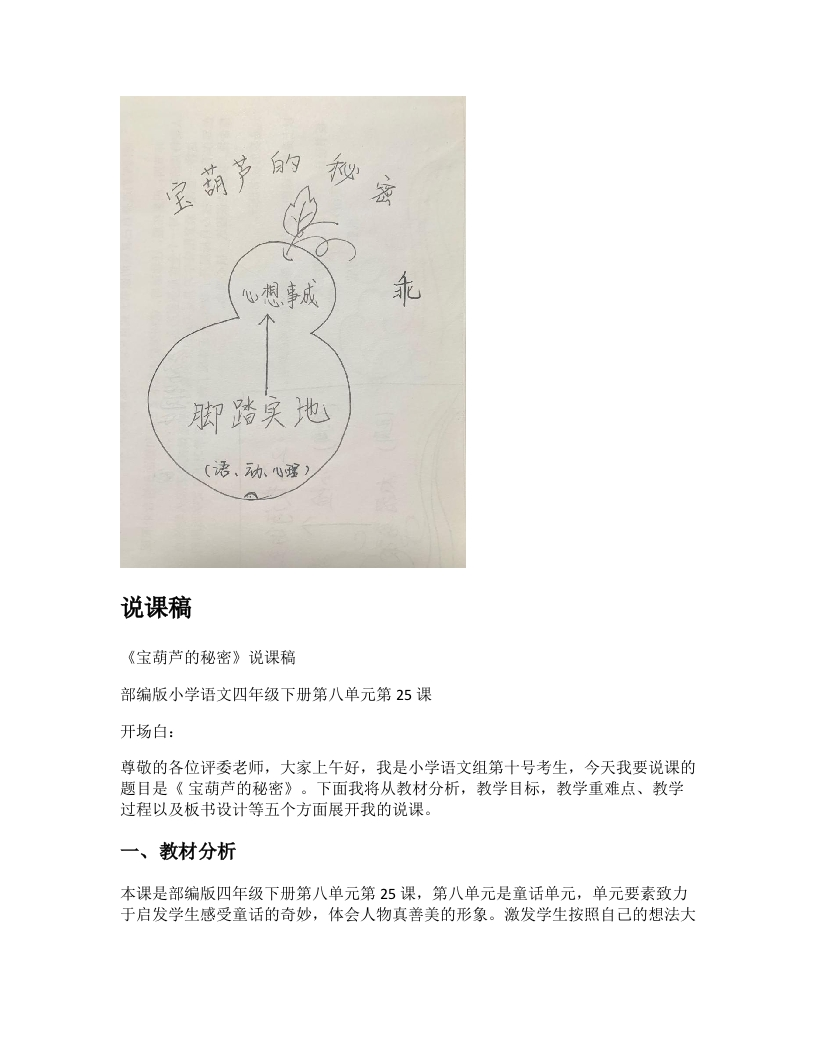 宝葫芦的秘密
心想事成
乖
脚踏实地
(语、动、心理)
说课稿
《宝葫芦的秘密》说课稿
部编版小学语文四年级下册第八单元第 25 课
开场白：
尊敬的各位评委老师，大家上午好，我是小学语文组第十号考生，今天我要说课的
题目是《 宝葫芦的秘密》。下面我将从教材分析，教学目标，教学重难点、教学
过程以及板书设计等五个方面展开我的说课。
一、教材分析
本课是部编版四年级下册第八单元第 25 课，第八单元是童话单元，单元要素致力
于启发学生感受童话的奇妙，体会人物真善美的形象。激发学生按照自己的想法大